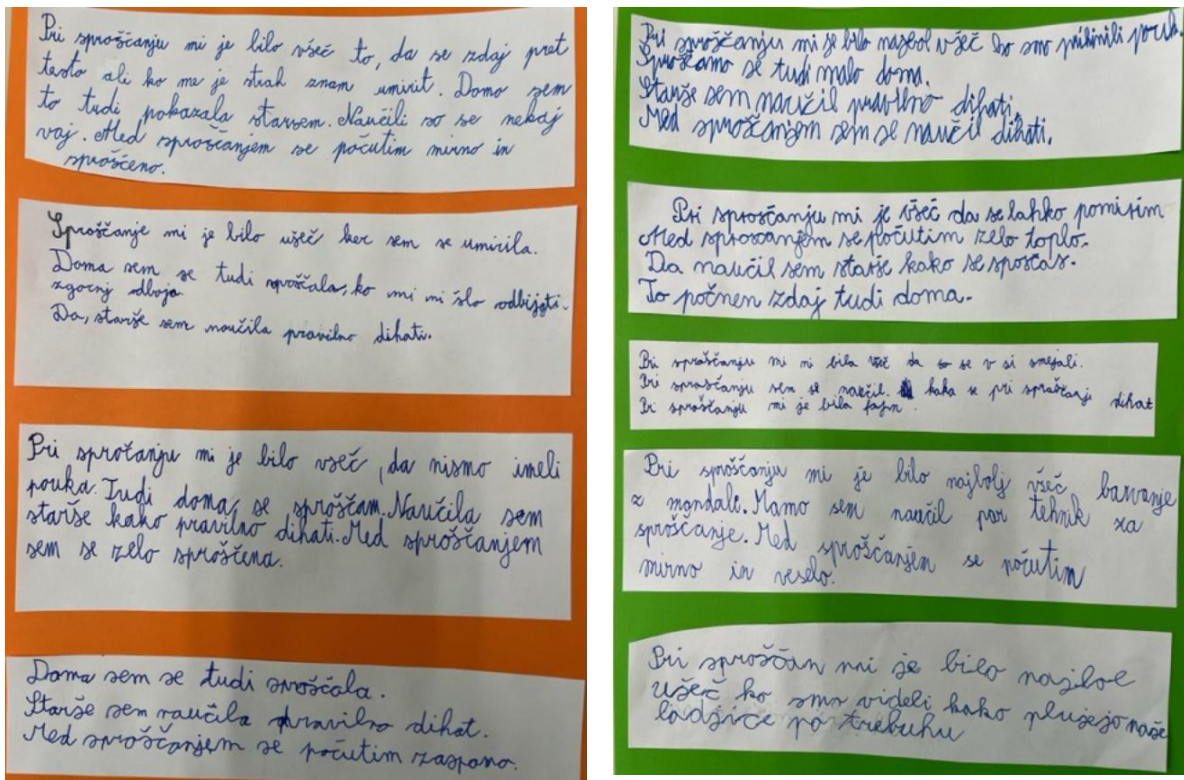 Pri sproščanju mi je bilo všeč to, da se zdaj pret
testo ali ko me je strah znam umirit. Domo sem
to tudi pokazala starsem. Naučili so se nekaj
vaj. Med sproščanjem se počutim mirno in
sproščeno.
Sproščanje mi je bilo ušeč ker sem se umirila.
Doma sem se tudi sproščala, ko mi ni šlo odbijati.
zgornj odboja
Da, starše sem naučila pravilno dihati.
Pri spročanju mi je bilo všeč, da nismo imeli
pouka. Tudi doma se sproščam. Naučila sem
starše kako pravilno dihati. Med sproščanjem
sem se zelo sproščena.
Doma sem se tudi sproščala.
Starše sem naučila pravilno dihat.
Med sproščanjem se počutim zaspano.
Pri sproščanju mi je bilo najbol všeč ko smo
Sproščamo se tudi malo doma.
Starše sem naučil pravilno dihati.
Med sproščanjem sem se naučil dihati.
Pri sproščanju mi je všeč da se lahko pomirim
Med sproscanjem se počutim zelo toplo.
Da naučil sem starše kako se sposčas.
To počnen zdaj tudi doma.
Pri sproščanju mi ni bila všeč da so se v si smejali.
Pri sproščanju sem se naučil. kaka se pri sproščanji dihat
Pri sproščanju mi je bila fajn.
Pri sproščanju mi je bilo najbolj všeč barvanje
z mandali. Mamo sem naučil par tehnik za
sproščanje. Med sproščanjem se počutim
mirno in veselo.
Pri sproščan mi je bilo najbol
ušeč ko smo videli kako plujejo naše
ladjice po trebuhu